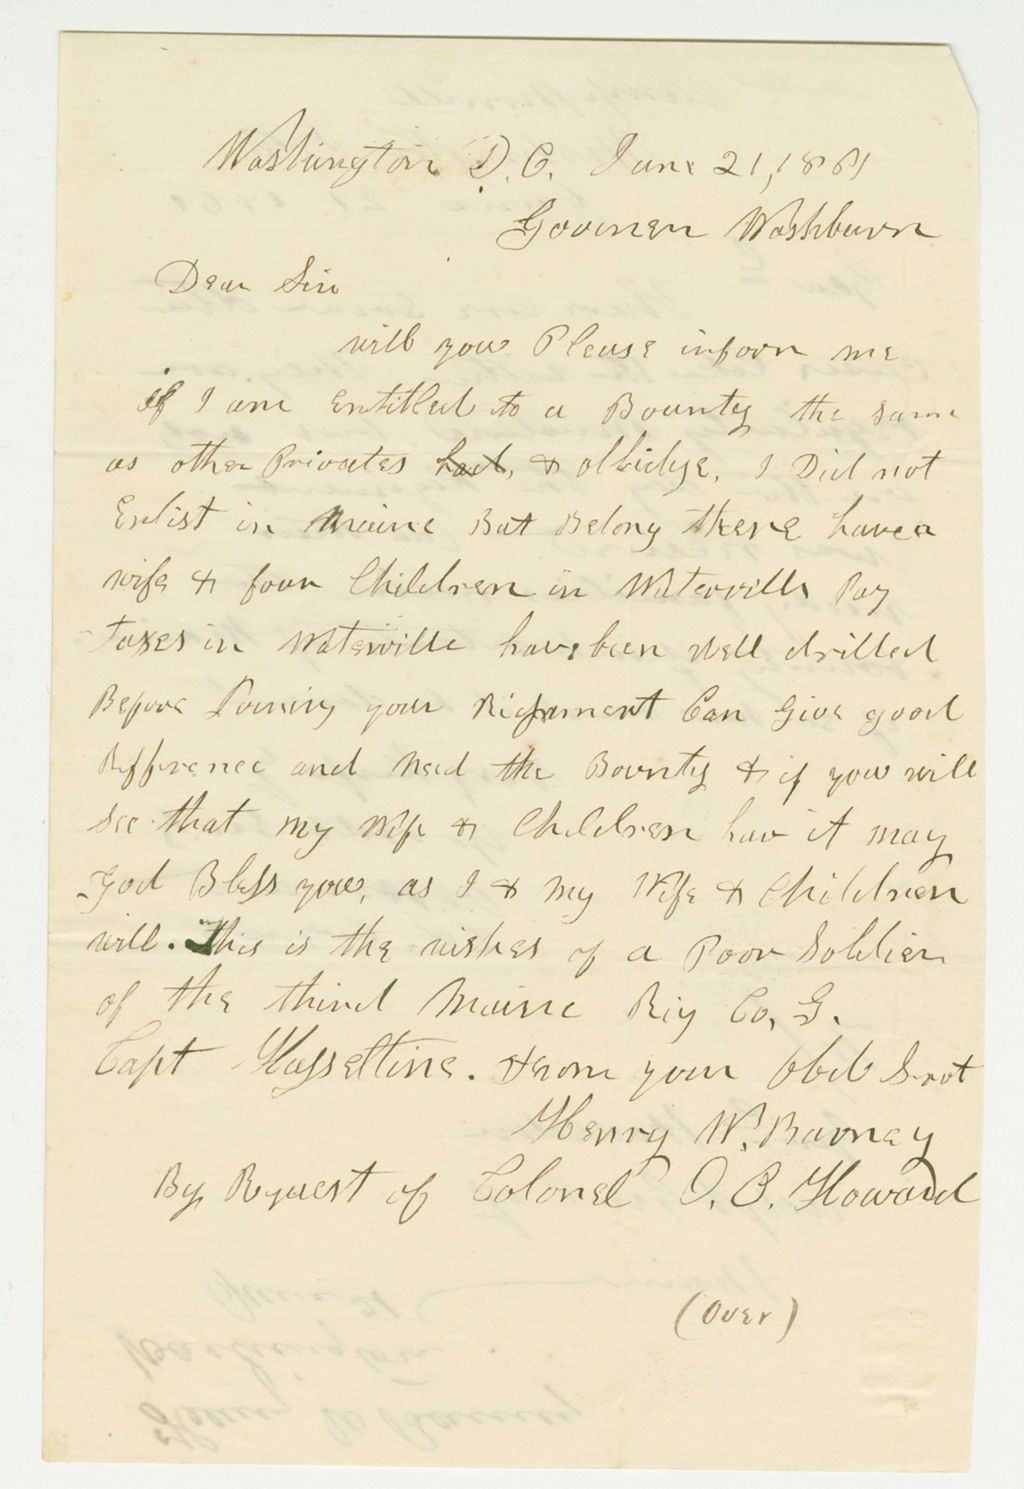 Washington D.C. June 21, 1861
Goovnen Washburn
Dear Sir
will you Please infoorn me
if I am Entitled to a Bounty the same
as other Privates had, & oblidge, I Did not
Enlist in Maine But Belong there have a
wife & four Children in Waterville Pay
Taxes in Waterville have been well drilled
Before Joining your Rigement Can Give good
Refference and Need the Bounty & if you will
see that my Wife & Children hav it may
God Bless you, as I & my Wife & Children
will. This is the wishes of a Poor Soldier
of the third Maine Rig Co, G.
Capt Hesseltine. From your Obd Srvt
Henry W. Barney
By Request of Colonel O. O. Howard
(over)